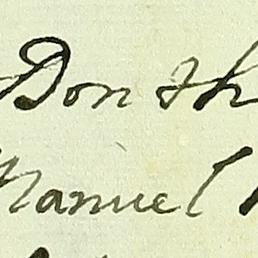 Don Th
Manuel